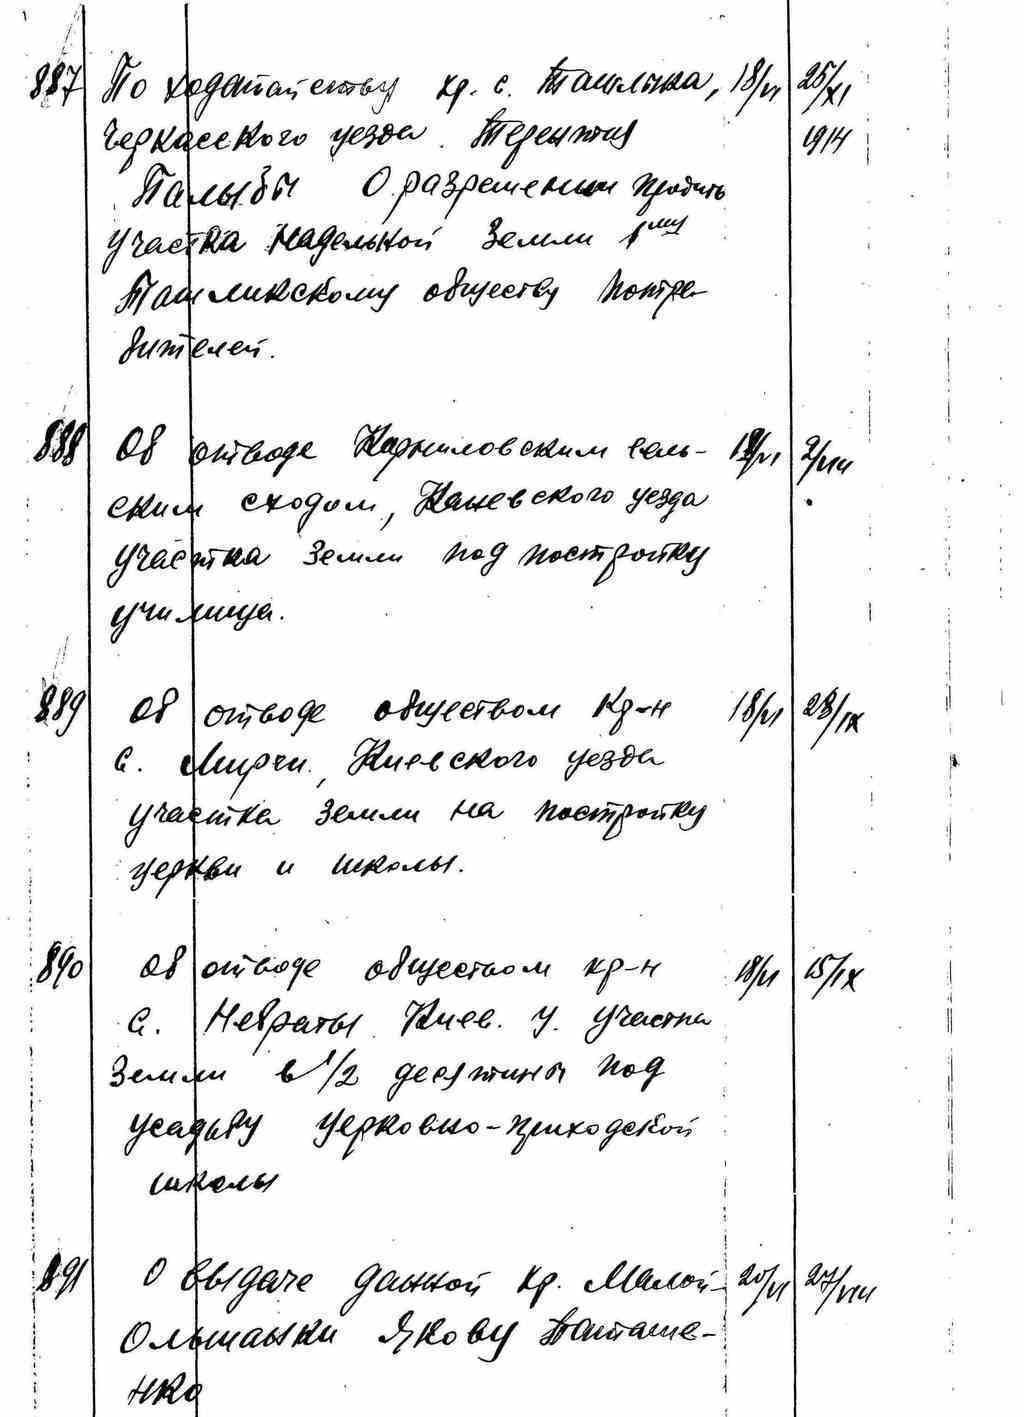 887 По ходатайству кр. с. Ташлыка, 18/VI 25/XI
Черкасского уезда Терентия 1914
Палыбы О разрешении продать
участка надельной земли 1му
Ташликскому обществу потре-
бителей.
888 Об отводе Карниловским сель- 18/VI 2/VIII
ским сходом, Каневского уезда
участка земли под постройку
училища.
889 Об отводе обществом кр-н 18/VI 28/IX
с. Мирчи, Киевского уезда
участка земли на постройку
церкви и школы.
890 Об отводе обществом кр-н 18/VI 15/IX
с. Невраты Киев. у. участка
земли в 1/2 десятины под
усадьбу церковно-приходской
школы
891 О выдаче данной кр. Малой- 20/VI 27/VIII
Ольшанки Якову Паташе-
нко